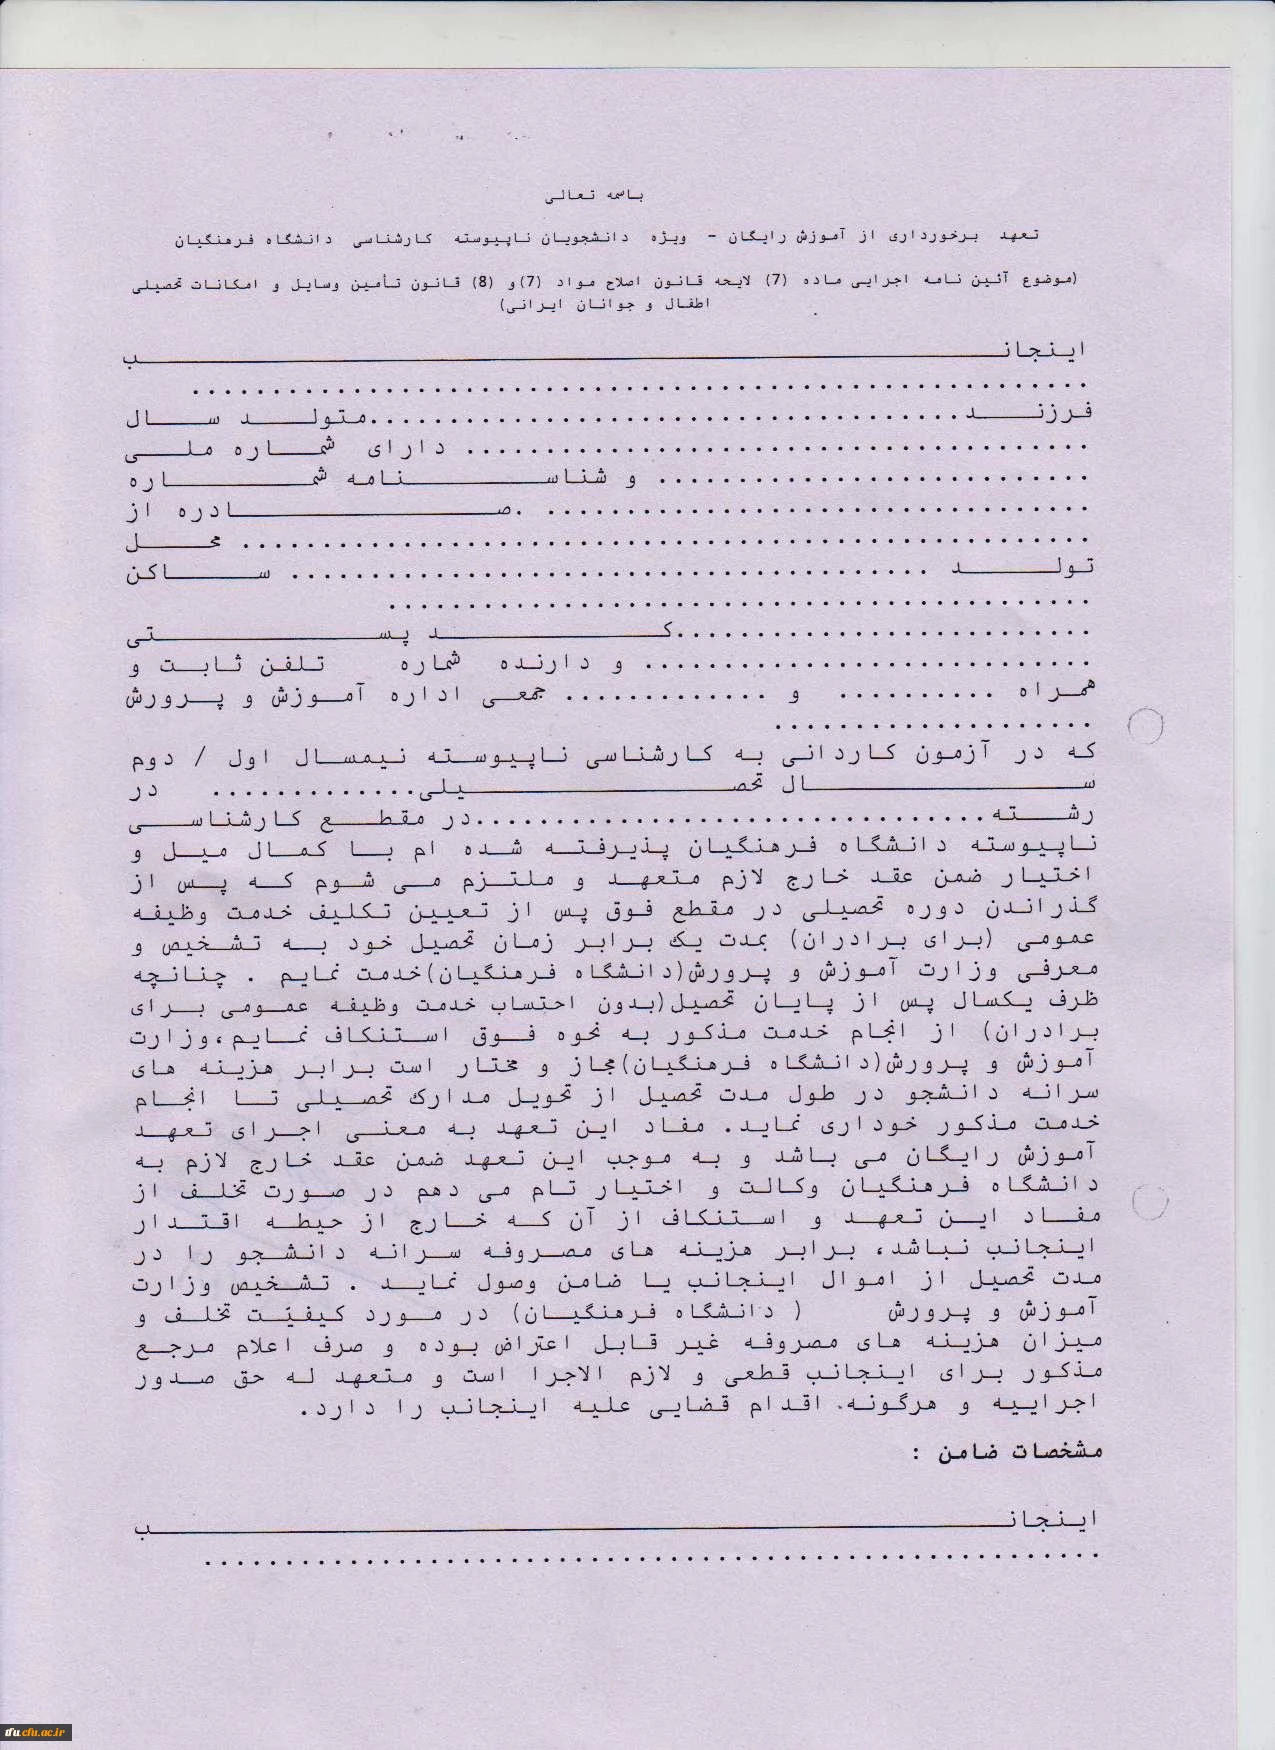 باسمه تعالی
تعهد برخورداری از آموزش رایگان - ویژه دانشجویان ناپیوسته کارشناسی دانشگاه فرهنگیان
(موضوع آئین نامه اجرایی ماده (7) لایحه قانون اصلاح مواد (7)و (8) قانون تأمین وسایل و امکانات تحصیلی
اطفال و جوانان ایرانی)
اینجانب
........................................................
فرزند.....................................متولد سال
....................................... دارای شماره ملی
........................... و شناسنامه شماره
.................................. .صادره از
..................................................... محل
تولد ........................................ ساکن
............................................
..........................کد پستی
............................ و دارنده شماره تلفن ثابت و
همراه .......... و ............. جمعی اداره آموزش و پرورش
....................
که در آزمون کاردانی به کارشناسی ناپیوسته نیمسال اول / دوم
سال تحصیلی............. در
رشته................................در مقطع کارشناسی
ناپیوسته دانشگاه فرهنگیان پذیرفته شده ام با کمال میل و
اختیار ضمن عقد خارج لازم متعهد و ملتزم می شوم که پس از
گذراندن دوره تحصیلی در مقطع فوق پس از تعیین تکلیف خدمت وظیفه
عمومی (برای برادران) بمدت یک برابر زمان تحصیل خود به تشخیص و
معرفی وزارت آموزش و پرورش(دانشگاه فرهنگیان)خدمت نمایم . چنانچه
ظرف یکسال پس از پایان تحصیل(بدون احتساب خدمت وظیفه عمومی برای
برادران) از انجام خدمت مذکور به نحوه فوق استنکاف نمایم،وزارت
آموزش و پرورش(دانشگاه فرهنگیان)مجاز و مختار است برابر هزینه های
سرانه دانشجو در طول مدت تحصیل از تحویل مدارک تحصیلی تا انجام
خدمت مذکور خودداری نماید. مفاد این تعهد به معنی اجرای تعهد
آموزش رایگان می باشد و به موجب این تعهد ضمن عقد خارج لازم به
دانشگاه فرهنگیان وکالت و اختیار تام می دهم در صورت تخلف از
مفاد این تعهد و استنکاف از آن که خارج از حیطه اقتدار
اینجانب نباشد، برابر هزینه های مصروفه سرانه دانشجو را در
مدت تحصیل از اموال اینجانب یا ضامن وصول نماید . تشخیص وزارت
آموزش و پرورش ( دانشگاه فرهنگیان) در مورد کیفیت تخلف و
میزان هزینه های مصروفه غیر قابل اعتراض بوده و صرف اعلام مرجع
مذکور برای اینجانب قطعی و لازم الاجرا است و متعهد له حق صدور
اجراییه و هرگونه اقدام قضایی علیه اینجانب را دارد.
مشخصات ضامن :
اینجانب
........................................................
tfu.cfu.ac.ir